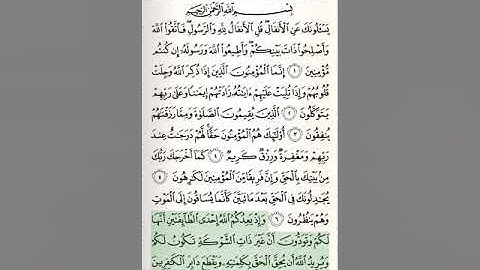 بِسْمِ اللَّهِ الرَّحْمَٰنِ الرَّحِيمِ
يَسْـَٔلُونَكَ عَنِ الْأَنفَالِ ۖ قُلِ الْأَنفَالُ لِلَّهِ وَالرَّسُولِ ۖ فَاتَّقُوا۟ اللَّهَ
وَأَصْلِحُوا۟ ذَاتَ بَيْنِكُمْ ۖ وَأَطِيعُوا۟ اللَّهَ وَرَسُولَهُۥٓ إِن كُنتُم
مُّؤْمِنِينَ ١ إِنَّمَا الْمُؤْمِنُونَ الَّذِينَ إِذَا ذُكِرَ اللَّهُ وَجِلَتْ
قُلُوبُهُمْ وَإِذَا تُلِيَتْ عَلَيْهِمْ ءَايَٰتُهُۥ زَادَتْهُمْ إِيمَٰنًا وَعَلَىٰ رَبِّهِمْ
يَتَوَكَّلُونَ ٢ الَّذِينَ يُقِيمُونَ الصَّلَوٰةَ وَمِمَّا رَزَقْنَٰهُمْ
يُنفِقُونَ ٣ أُو۟لَٰٓئِكَ هُمُ الْمُؤْمِنُونَ حَقًّا ۚ لَّهُمْ دَرَجَٰتٌ عِندَ
رَبِّهِمْ وَمَغْفِرَةٌ وَرِزْقٌ كَرِيمٌ ٤ كَمَآ أَخْرَجَكَ رَبُّكَ
مِنۢ بَيْتِكَ بِالْحَقِّ وَإِنَّ فَرِيقًا مِّنَ الْمُؤْمِنِينَ لَكَٰرِهُونَ ٥
يُجَٰدِلُونَكَ فِى الْحَقِّ بَعْدَ مَا تَبَيَّنَ كَأَنَّمَا يُسَاقُونَ إِلَى الْمَوْتِ
وَهُمْ يَنظُرُونَ ٦ وَإِذْ يَعِدُكُمُ اللَّهُ إِحْدَى الطَّآئِفَتَيْنِ أَنَّهَا
لَكُمْ وَتَوَدُّونَ أَنَّ غَيْرَ ذَاتِ الشَّوْكَةِ تَكُونُ لَكُمْ
وَيُرِيدُ اللَّهُ أَن يُحِقَّ الْحَقَّ بِكَلِمَٰتِهِۦ وَيَقْطَعَ دَابِرَ الْكَٰفِرِينَ